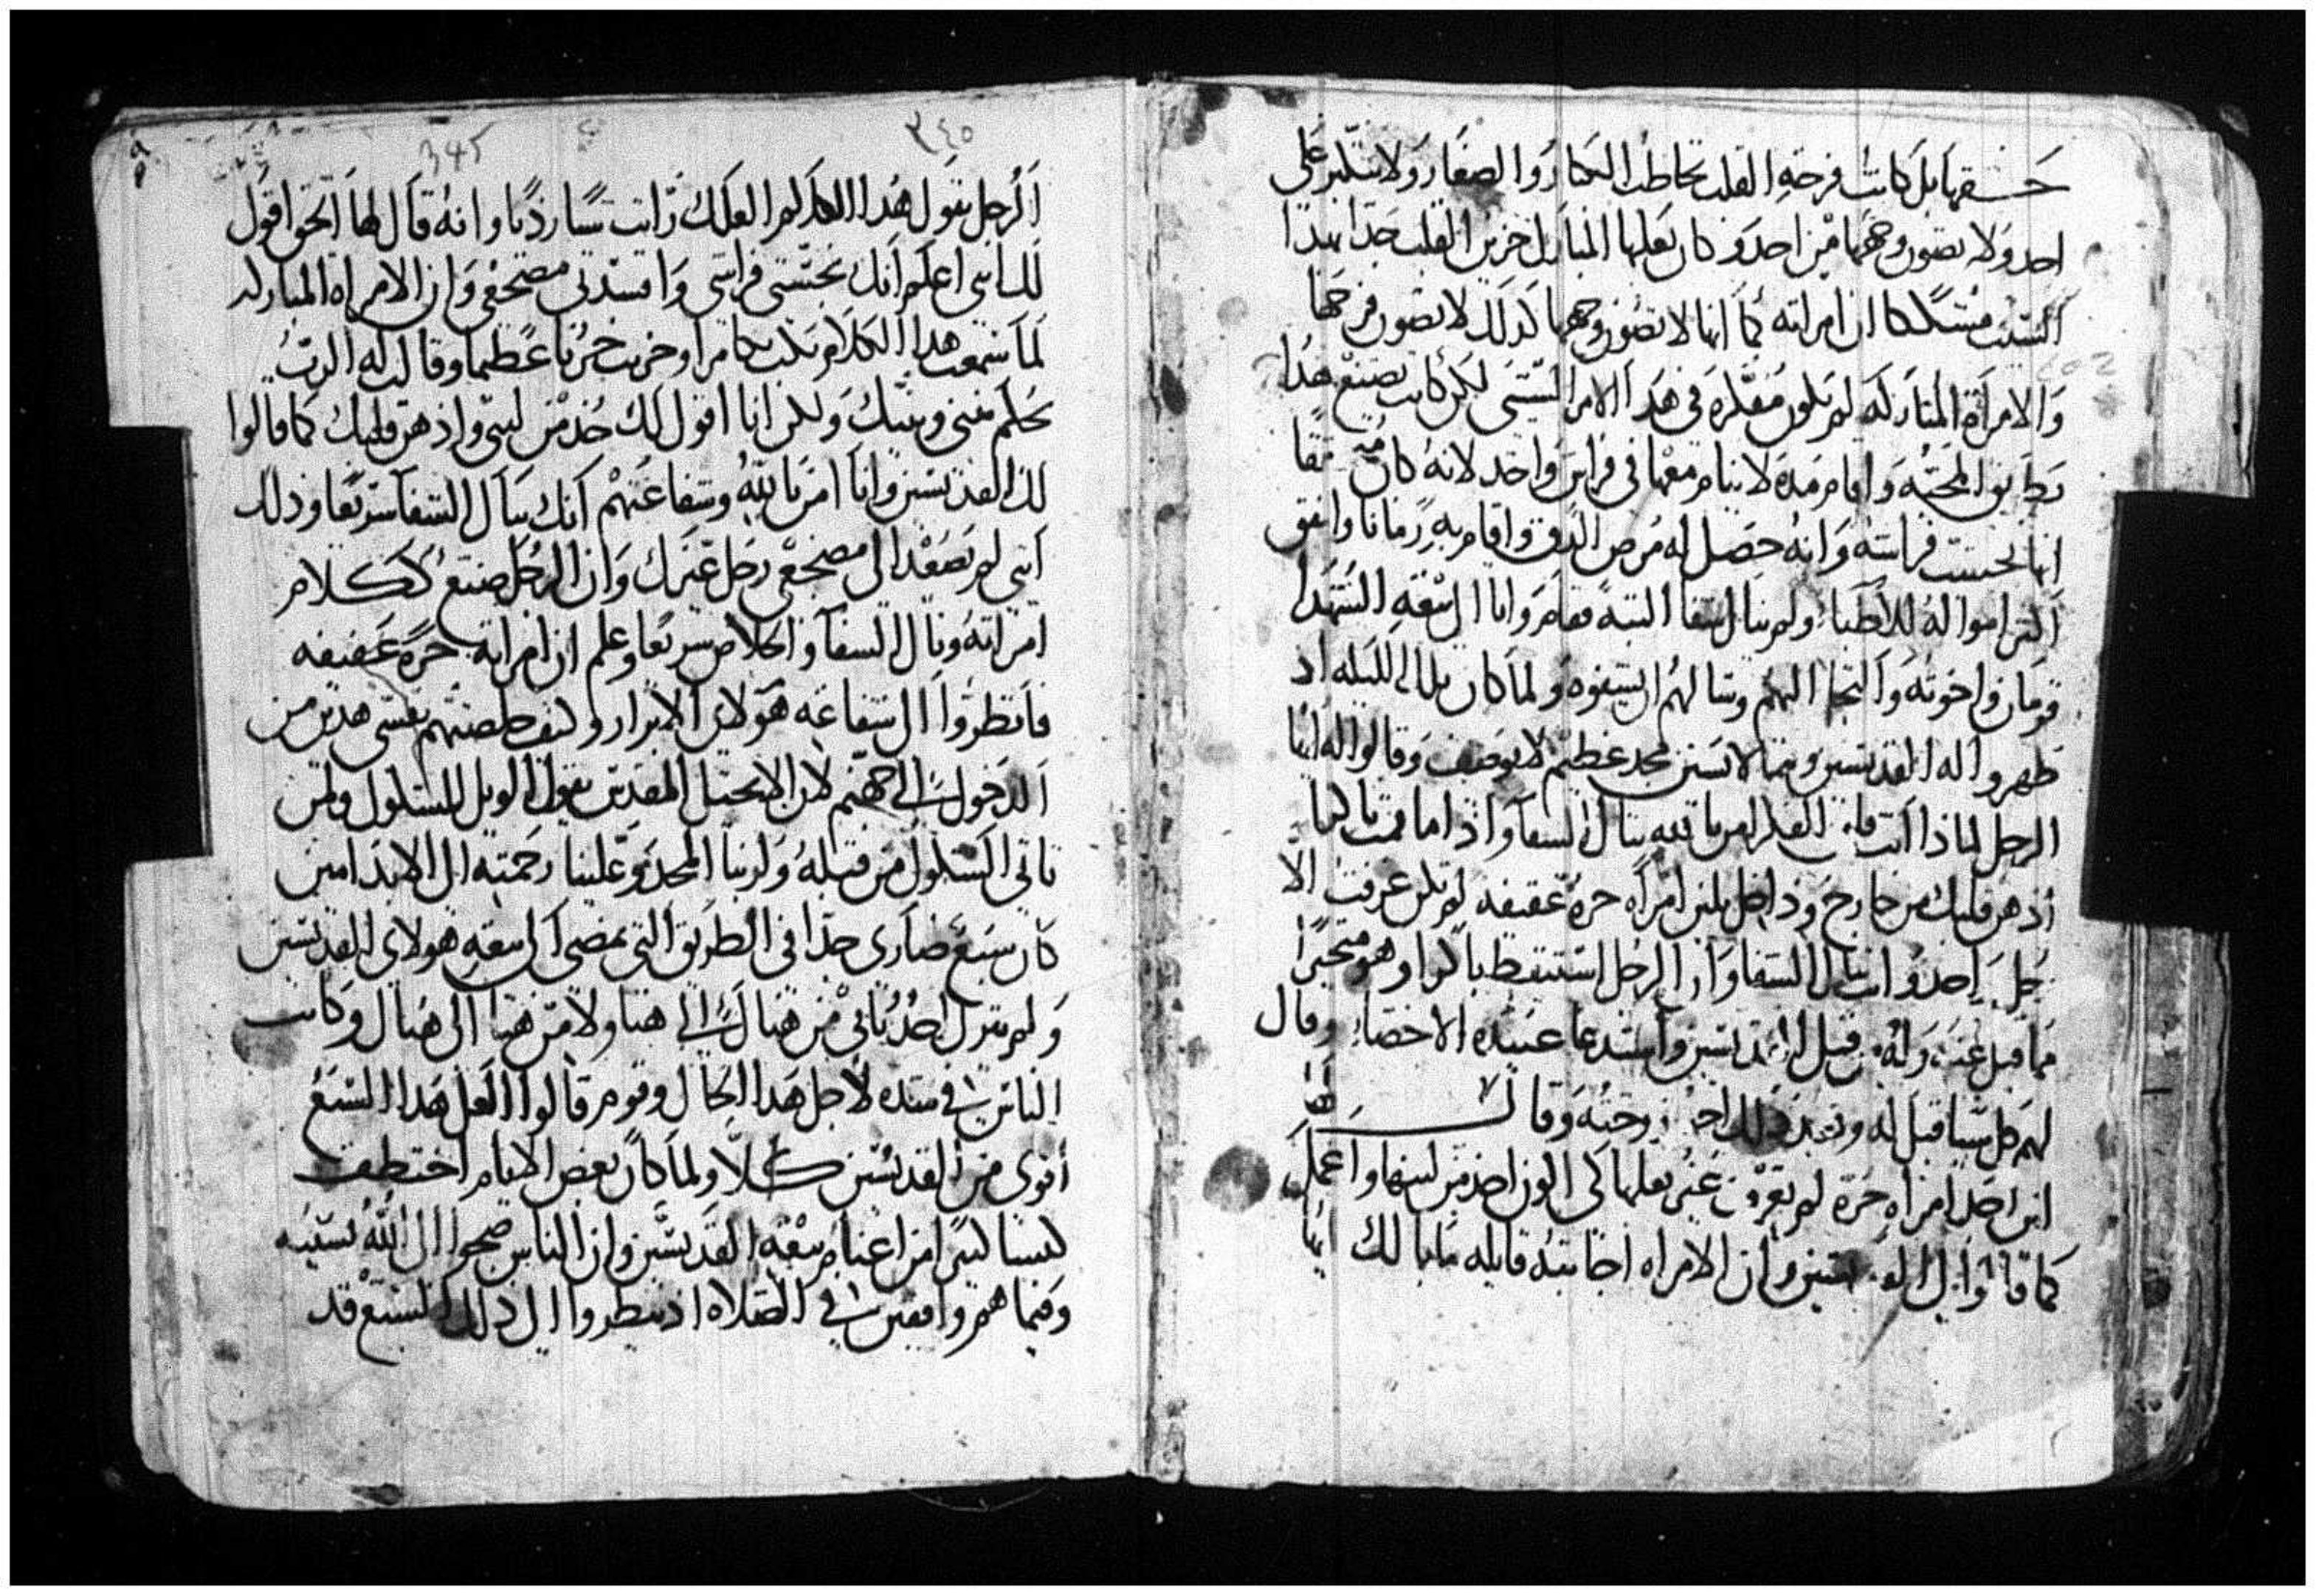 حسنها بل كانت فرحة القلب تخاطب الكبار والصغار ولا تتكبر على
احد ولا تصون وجهها من احد وكان بعلها المبارك حزين القلب جدا بهذا
السبب متشككا ان امراته كما انها لا تصون وجهها كذلك لا تصون فرجها
والامراة المباركه لم تكن مفكرة فى هذا الامر السيى لكن كانت تصنع هذا
بطريق المحبه واقام مده لا ينام معها فى فراش واحد لانه كان
انها نجست فراشه وانه حصل له مرض الدق واقام به زمانا وانفق
اكثر امواله للاطباء ولم ينال الشفا البته فقام واتا الى بيعة الشهدا
قزمان واخوته والتجا اليهم وسالهم ان يشفوه ولما كان تلك الليله اد
ظهروا له القديسين وهما لابسين مجد عظيم لا يوصف وقالوا له ايها
الرجل لماذا انت بالله تنال الشفا واذا ما قمت باكرا
ادهن قلبك من خارج وداخل بلبن امراه حره عفيفه لم تكن عرفت الا
رجل واحد وانت تنال الشفا وان الرجل استيقظ باكرا وهو متحيرا
مما قيل عنه وله من قبل القديسين واستدعا عبيده الاخصا وقال
لهم كل شيا قيل له وبعد ذلك زوجته وقالت لها
اين اجد امراه حره لم تعرف غير بعلها لكى اخذ من لبنها واعمل
كما قالوا لى القديسين وان الامراه اجابته قايله ما بالك ايها
٣٤٥
345
الرجل تقول هذا الكلام لعلك رايت شيا رديا وانه قال لها الحق اقول
لك اننى اعلم انك نجستى فراشى وافسدتى مضجعى وان الامراه المباركه
لما سمعت هدا الكلام بكت بكا مرا وحزنت حزنا عظيما وقالت له الرب
يحكم بينى وبينك ولكن انا اقول لك خد من لبنى وادهن قلبك كما قالوا
لك القديسين وانا اومن بالله وشفاعتهم انك تنال الشفا سريعا وذلك
اننى لم يصعد الى مضجعى رجل غيرك وان الرجل صنع كلام
امراته ونال الشفا والخلاص سريعا وعلم ان امراته حره عفيفه
فانظروا الى شفاعة هولاى الابرار وكيف خلصتهم نفسى هدين من
الدخول الى جهنم لان الانجيل المقدس يقول الويل للشكوك ولمن
تاتى الشكوك من قبله ولربنا المجد وعلينا رحمته الى الابد امين
كان سبع ضارى جدا فى الطريق التى تمضى الى بيعة هولاى القديسين
ولم يترك احد ياتى من هناك الى هنا ولا من هنا الى هناك وكانت
الناس فى شده لاجل هذا الحال وقوم قالوا العل هدا السبع
اقوى من القديسين كلا ولما كان بعض الايام اختطف
كبشا كبيرا من اغنام بيعة القديسين وان الناس ضجوا الى الله بسببه
وفيما هم واقفين فى الصلاه اذ نظروا الى ذلك السبع قد